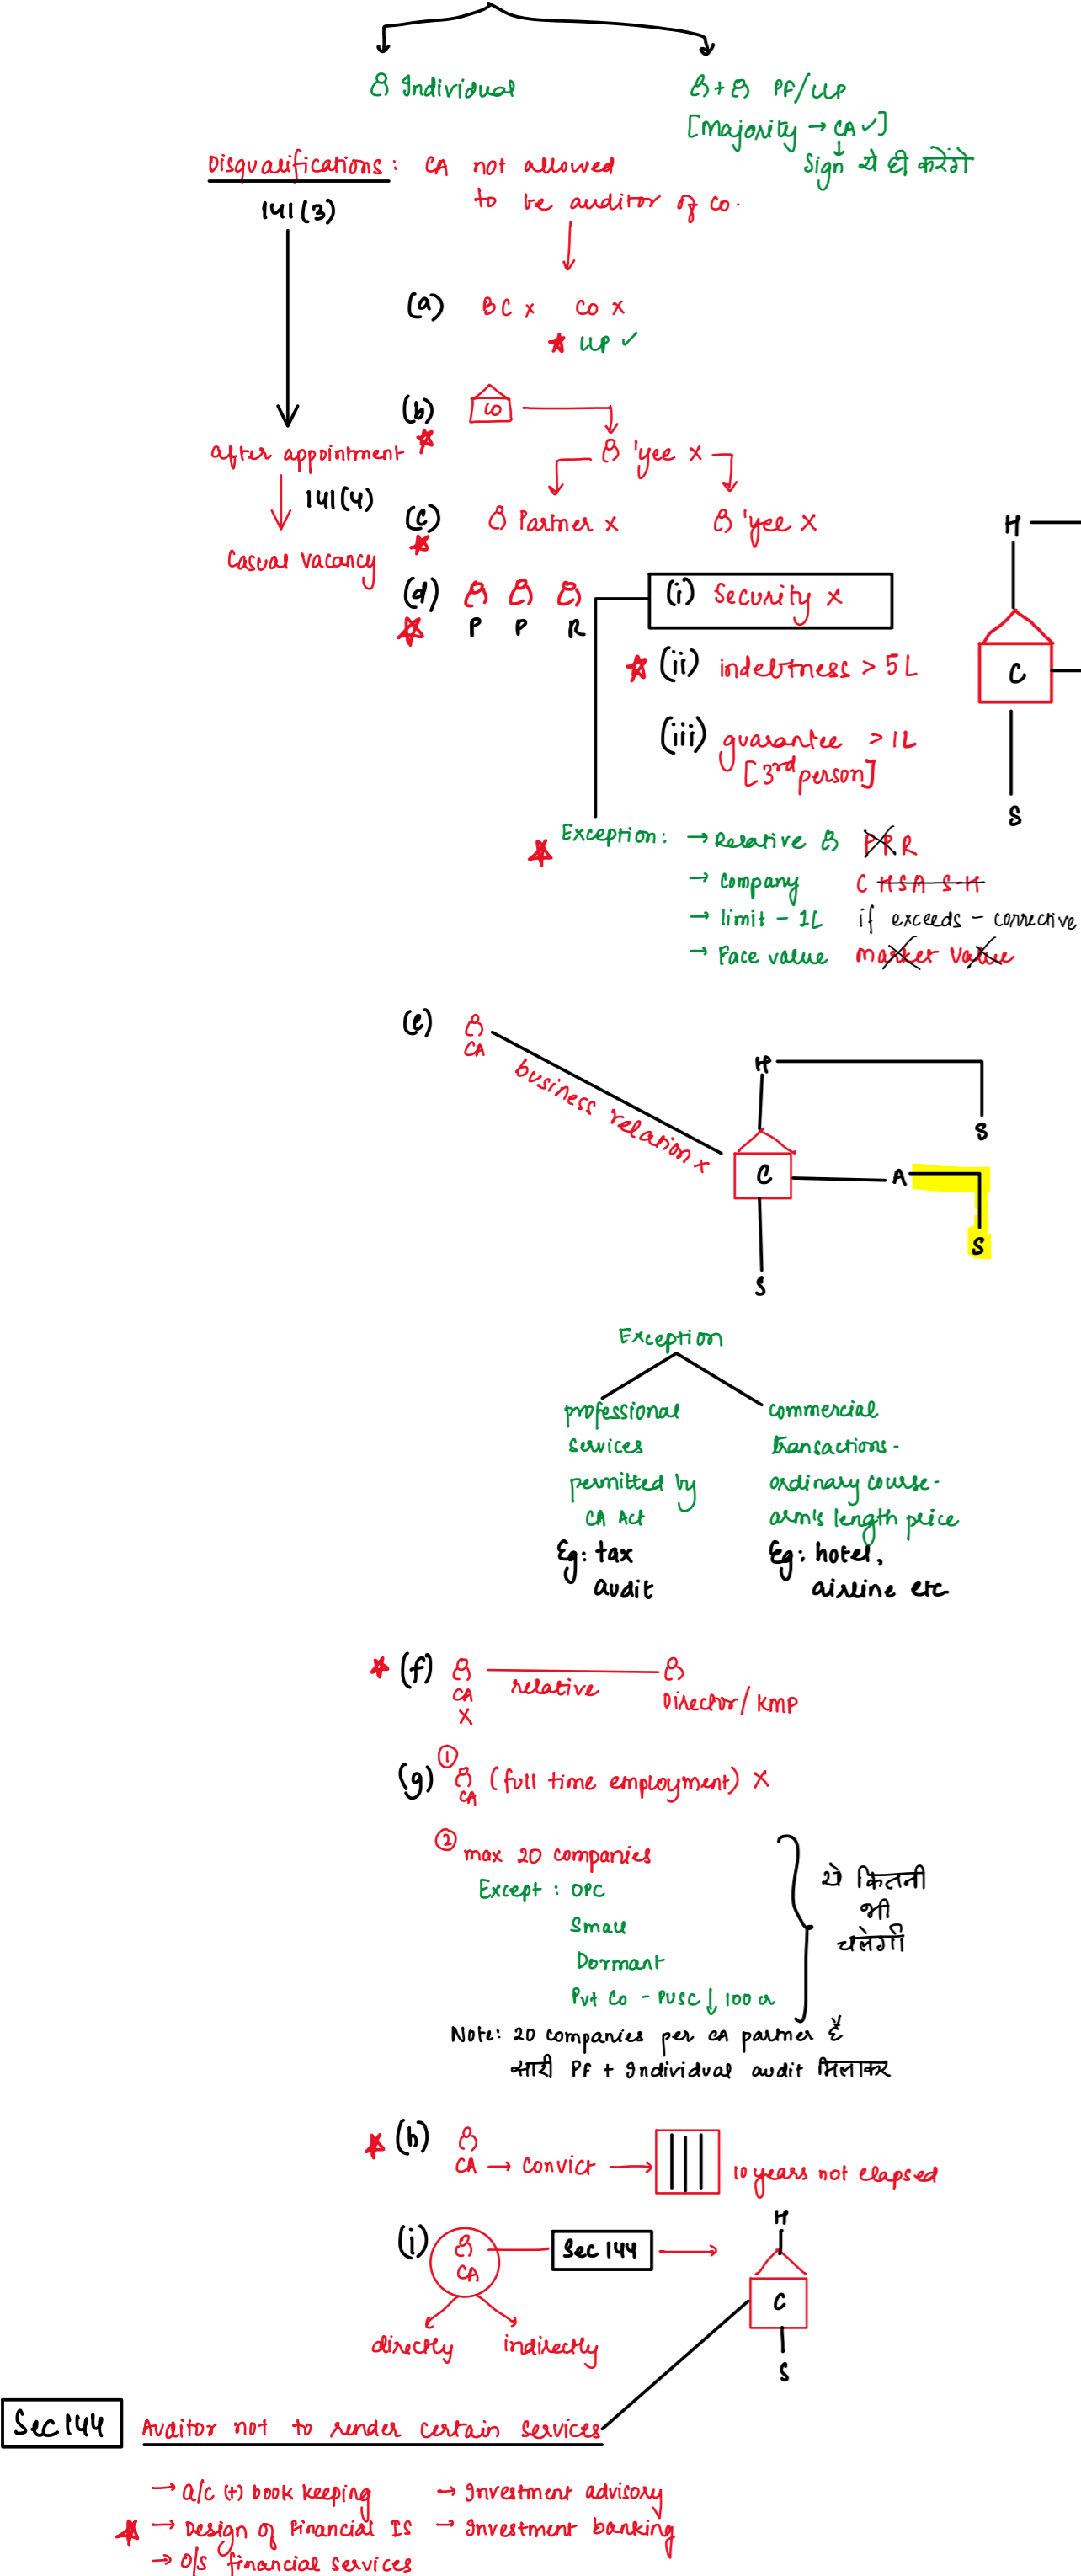 Individual
+ PF/LLP
[Majority → CA ✓]
Sign ये ही करेंगे
Disqualifications : CA not allowed
to be auditor of co.
141(3)
(a) BC x CO x
LLP ✓
(b) CO
'yee x
after appointment
141(4)
(c) Partner x 'yee x
Casual vacancy
(d) P P R
(i) Security x
(ii) indebtness > 5L
(iii) guarantee > 1L
[3rd person]
H
C
S
Exception: → Relative PPR
→ Company C HSA S-H
→ limit - 1L if exceeds - corrective
→ Face value market value
(e) CA
business relation x
H
S
C
A
S
S
Exception
professional
services
permitted by
CA Act
Eg: tax
audit
commercial
transactions -
ordinary course -
arm's length price
Eg: hotel,
airline etc
(f) CA relative Director/KMP
X
(g) ① CA (full time employment) X
② max 20 companies
Except : OPC
Small
Dormant
Pvt Co - PUSC ↓ 100 cr
ये कितनी
भी
चलेगी
Note: 20 companies per CA partner है
सारी PF + Individual audit मिलाकर
(h) CA → convict → 10 years not elapsed
(i) CA Sec 144 →
H
C
S
directly indirectly
Sec 144 Auditor not to render certain services
→ a/c (+) book keeping → Investment advisory
→ Design of financial IS → Investment banking
→ O/S financial services